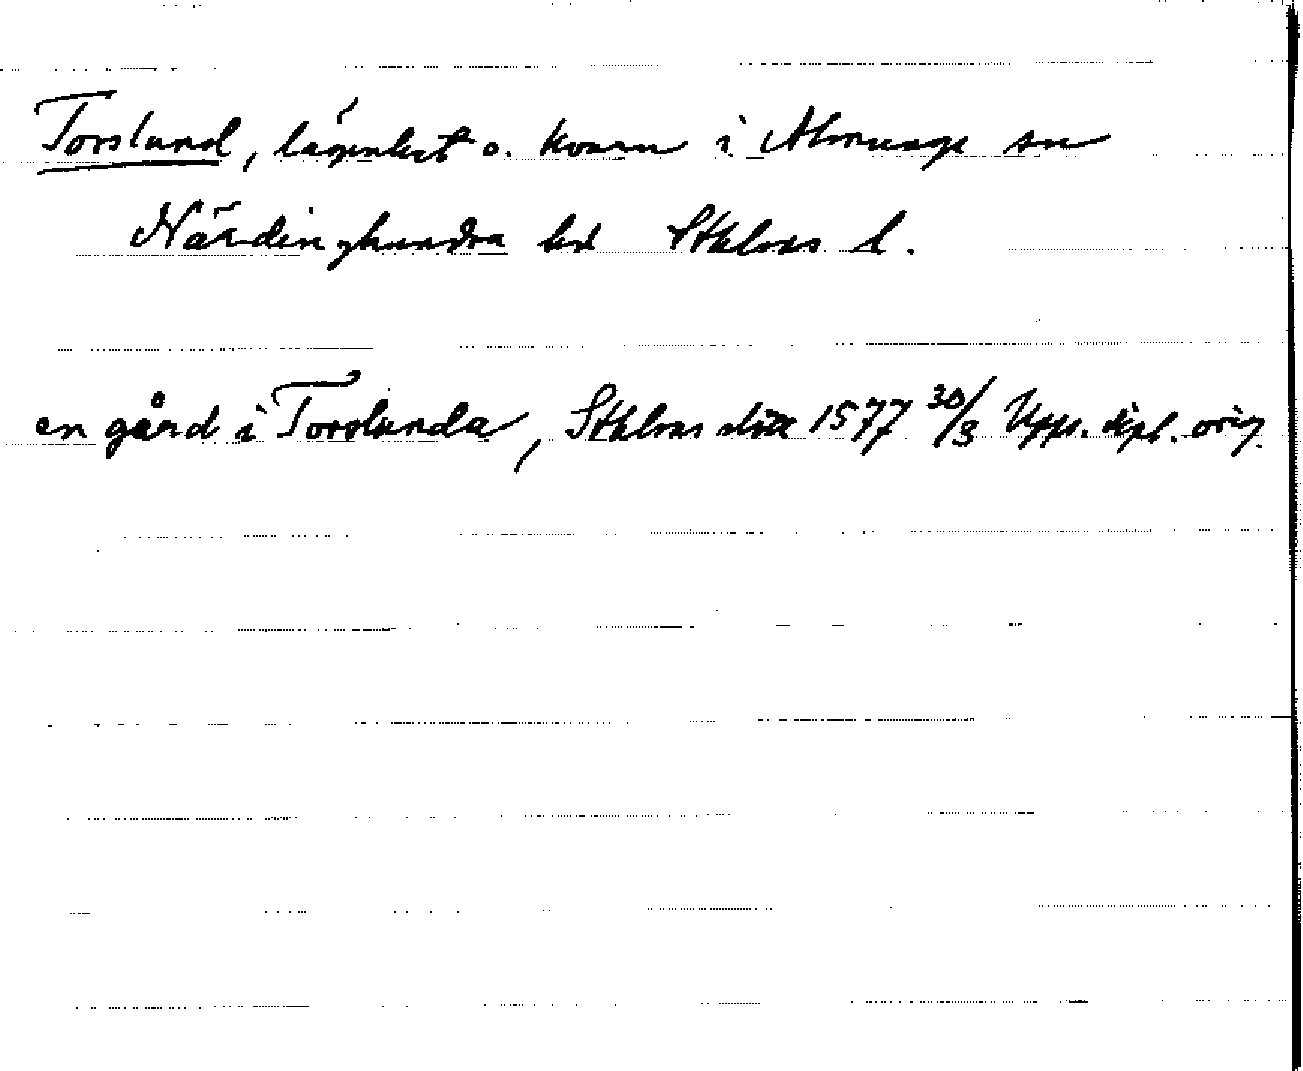 Torslund, lägenhet o. kvarn i Almunge sn
Närdinghundra hd Sthlms l.
en gård i Torslunda, Sthlms slott 1577 30/3 Upps. dipl. orig.